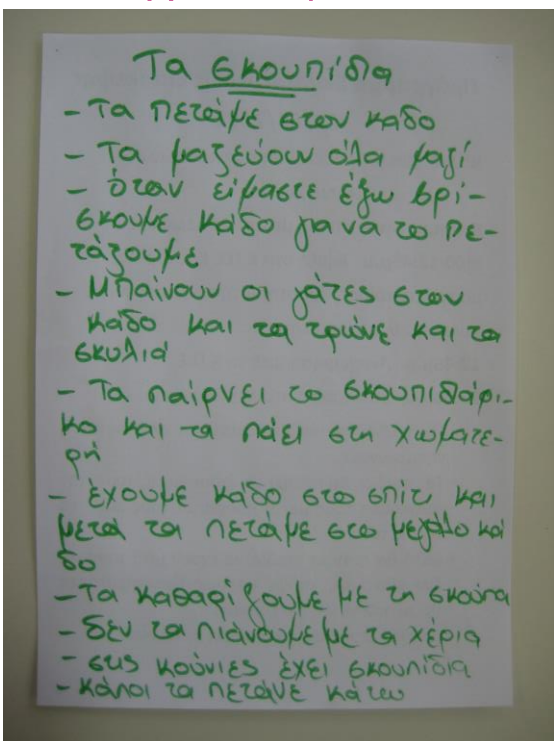 Τα σκουπίδια
- Τα πετάμε στον κάδο
- Τα μαζεύουν όλα μαζί
- όταν είμαστε έξω βρί-
σκουμε κάδο για να το πε-
τάξουμε
- Μπαίνουν οι γάτες στον
κάδο και τα τρώνε και τα
σκυλιά
- Τα παίρνει το σκουπιδιάρι-
κο και τα πάει στη χωματε-
ρή
- έχουμε κάδο στο σπίτι και
μετά τα πετάμε στο μεγάλο κά
δο
- Τα καθαρίζουμε με τη σκούπα
- δεν τα πιάνουμε με τα χέρια
- στις κούνιες έχει σκουπίδια
- κάποι τα πετάνε κάτω